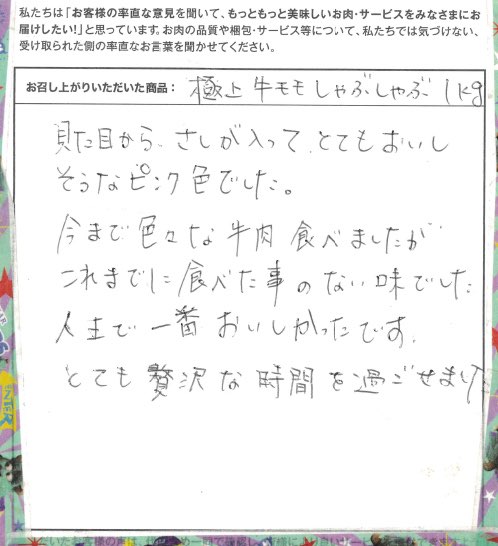 私たちは「お客様の率直な意見を聞いて、もっともっと美味しいお肉・サービスをみなさまにお
届けしたい！」と思っています。お肉の品質や梱包・サービス等について、私たちでは気づけない、
受け取られた側の率直なお言葉を聞かせてください。
お召し上がりいただいた商品： 極上牛モモしゃぶしゃぶ 1kg
見た目から、さしが入って、とてもおいし
そうなピンク色でした。
今まで色々な牛肉食べましたが
これまでに食べた事のない味でした
人生で一番おいしかったです。
とても贅沢な時間を過ごせました
ENTER